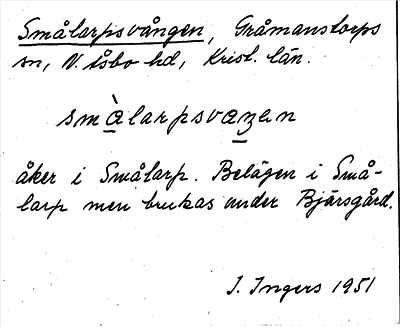 Smålarpsvången, Gråmanstorps
sn, N. Åsbo hd, Krist. län.
smàlarpsvaŋen
åker i Smålarp. Belägen i Små-
larp men brukas under Bjärsgård.
I. Ingers 1951